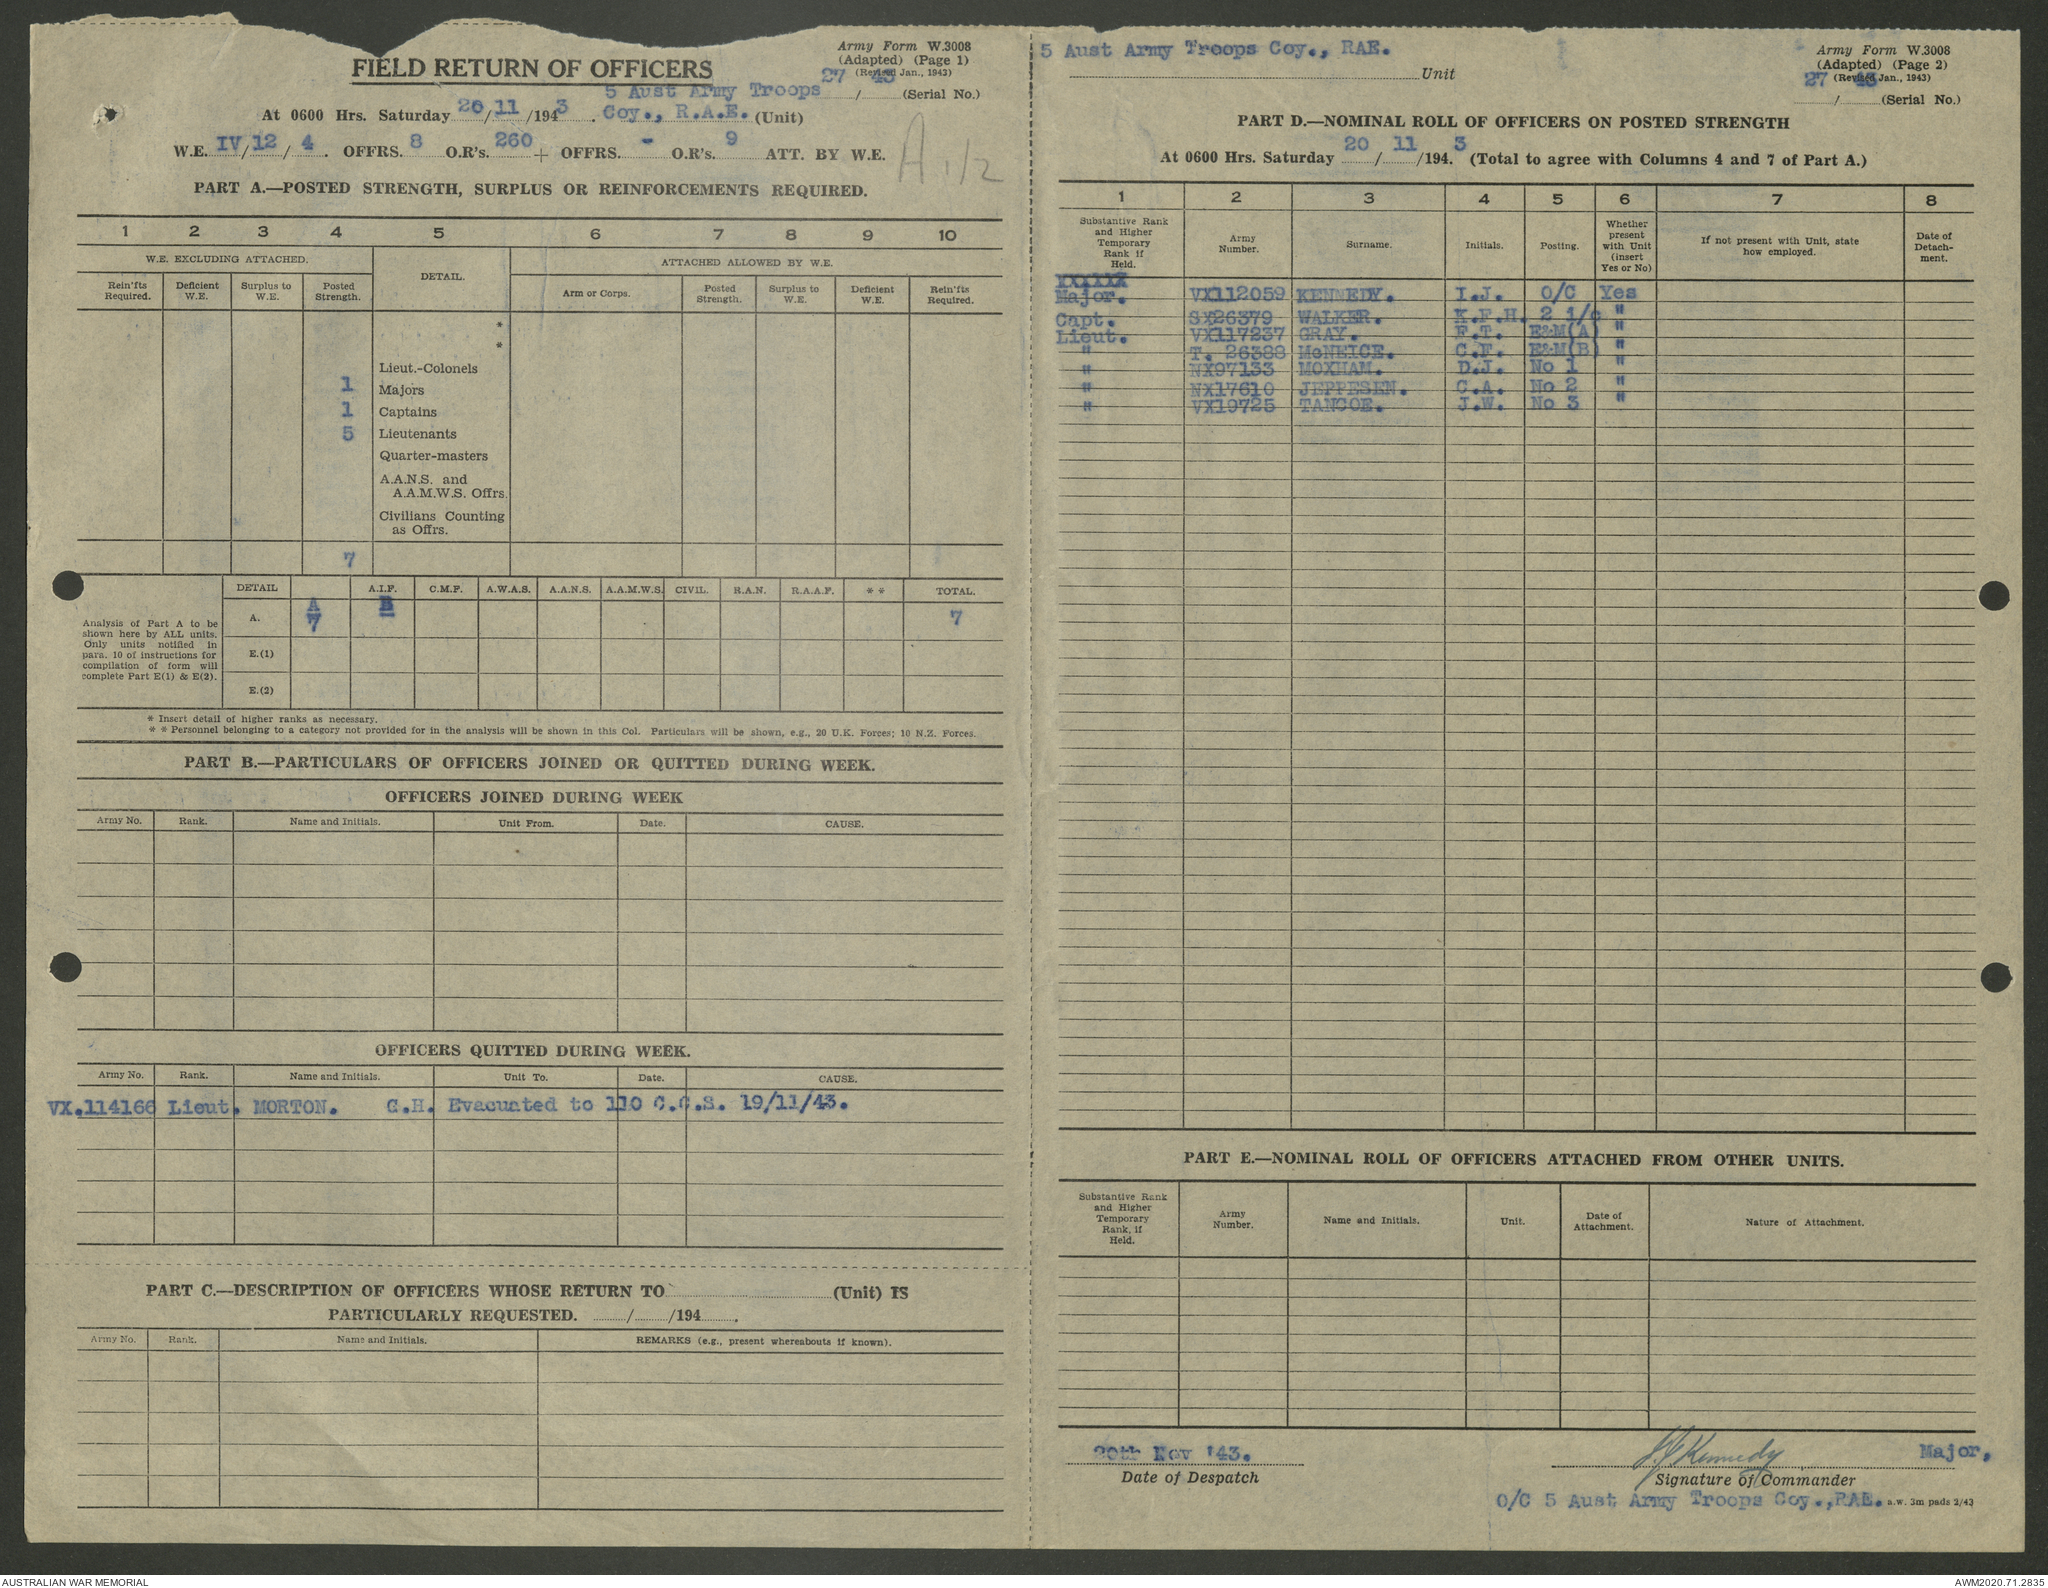 Army Form W.3008
(Adapted) (Page 1)
(Revised Jan., 1943)
FIELD RETURN OF OFFICERS
27 / 43 (Serial No.)
At 0600 Hrs. Saturday 20/11/1943. 5 Aust Army Troops Coy., R.A.E. (Unit)
W.E. IV/12/4. OFFRS. 8 O.R's. 260 + OFFRS. - O.R's. 9 ATT. BY W.E.
A 1/2
PART A.—POSTED STRENGTH, SURPLUS OR REINFORCEMENTS REQUIRED.
1 2 3 4 5 6 7 8 9 10
W.E. EXCLUDING ATTACHED. DETAIL. ATTACHED ALLOWED BY W.E.
Rein'fts Required. Deficient W.E. Surplus to W.E. Posted Strength. Arm or Corps. Posted Strength. Surplus to W.E. Deficient W.E. Rein'fts Required.
*
*
Lieut.-Colonels
1 Majors
1 Captains
5 Lieutenants
Quarter-masters
A.A.N.S. and
A.A.M.W.S. Offrs.
Civilians Counting
as Offrs.
7
DETAIL A.I.F. C.M.F. A.W.A.S. A.A.N.S. A.A.M.W.S. CIVIL. R.A.N. R.A.A.F. * * TOTAL.
Analysis of Part A to be
shown here by ALL units.
Only units notified in
para. 10 of instructions for
compilation of form will
complete Part E(1) & E(2).
A. A B
7 7
E.(1)
E.(2)
* Insert detail of higher ranks as necessary.
* * Personnel belonging to a category not provided for in the analysis will be shown in this Col. Particulars will be shown, e.g., 20 U.K. Forces; 10 N.Z. Forces.
PART B.—PARTICULARS OF OFFICERS JOINED OR QUITTED DURING WEEK.
OFFICERS JOINED DURING WEEK
Army No. Rank. Name and Initials. Unit From. Date. CAUSE.
OFFICERS QUITTED DURING WEEK.
Army No. Rank. Name and Initials. Unit To. Date. CAUSE.
VX.114166 Lieut. MORTON. C.H. Evacuated to 110 C.C.S. 19/11/43.
PART C.—DESCRIPTION OF OFFICERS WHOSE RETURN TO (Unit) IS
PARTICULARLY REQUESTED. / /194 .
Army No. Rank. Name and Initials. REMARKS (e.g., present whereabouts if known).
5 Aust Army Troops Coy., RAE. Unit
Army Form W.3008
(Adapted) (Page 2)
(Revised Jan., 1943)
27 / 43 (Serial No.)
PART D.—NOMINAL ROLL OF OFFICERS ON POSTED STRENGTH
At 0600 Hrs. Saturday 20/11/194.3 (Total to agree with Columns 4 and 7 of Part A.)
1 2 3 4 5 6 7 8
Substantive Rank and Higher Temporary Rank if Held. Army Number. Surname. Initials. Posting. Whether present with Unit (insert Yes or No) If not present with Unit, state how employed. Date of Detach-ment.
XXXXXX
Major. VX112059 KENNEDY. I.J. O/C Yes
Capt. SX26379 WALKER. K.F.H. 2 i/c "
Lieut. VX117237 GRAY. F.T. E&M(A) "
" T. 26388 McNEICE. C.F. E&M(B) "
" NX97133 MOXHAM. D.J. No 1 "
" NX17610 JEPPESEN. C.A. No 2 "
" VX19725 TANCOE. J.W. No 3 "
PART E.—NOMINAL ROLL OF OFFICERS ATTACHED FROM OTHER UNITS.
Substantive Rank and Higher Temporary Rank, if Held. Army Number. Name and Initials. Unit. Date of Attachment. Nature of Attachment.
20th Nov '43. I J Kennedy Major,
Date of Despatch Signature of Commander
O/C 5 Aust Army Troops Coy.,RAE. a.w. 3m pads 2/43
AUSTRALIAN WAR MEMORIAL AWM2020.71.2835